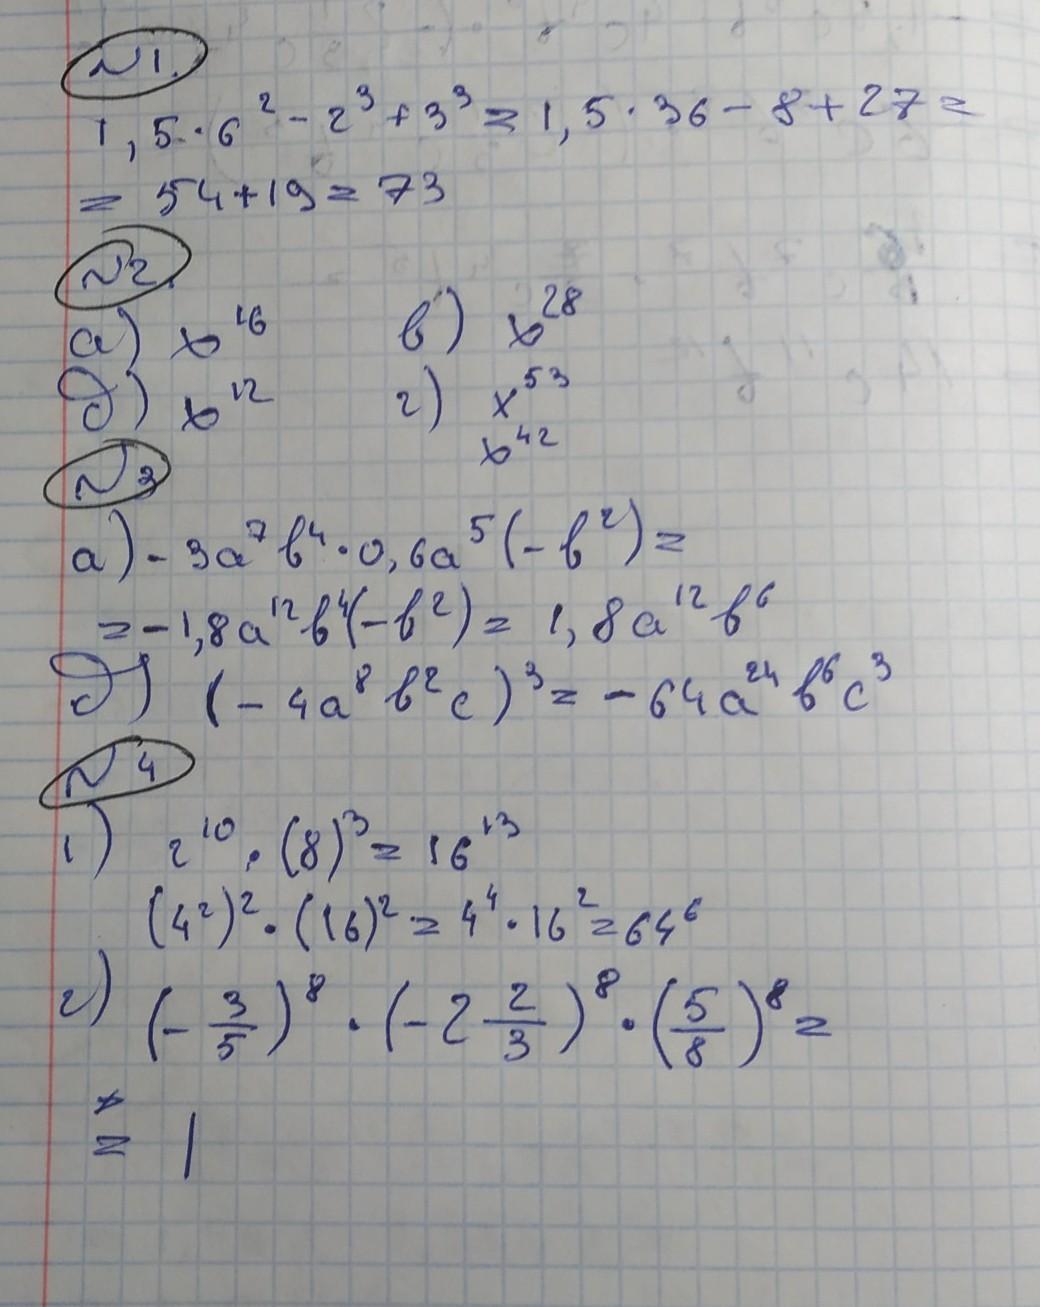 №1.
1,5·6² - 2³ + 3³ = 1,5·36 - 8 + 27 =
= 54 + 19 = 73
№2.
а) x¹⁶ в) x²⁸
б) x¹² г) x⁵³
x⁴²
№3
а) - 3a⁷b⁴·0,6a⁵(-b²) =
= -1,8a¹²b⁴(-b²) = 1,8a¹²b⁶
б) (-4a⁸b²c)³ = -64a²⁴b⁶c³
№4
1) 2¹⁰·(8)³ = 16¹³
(4²)²·(16)² = 4⁴·16² = 64⁶
2) (-3/5)⁸·(-2 2/3)⁸·(5/8)⁸ =
= 1